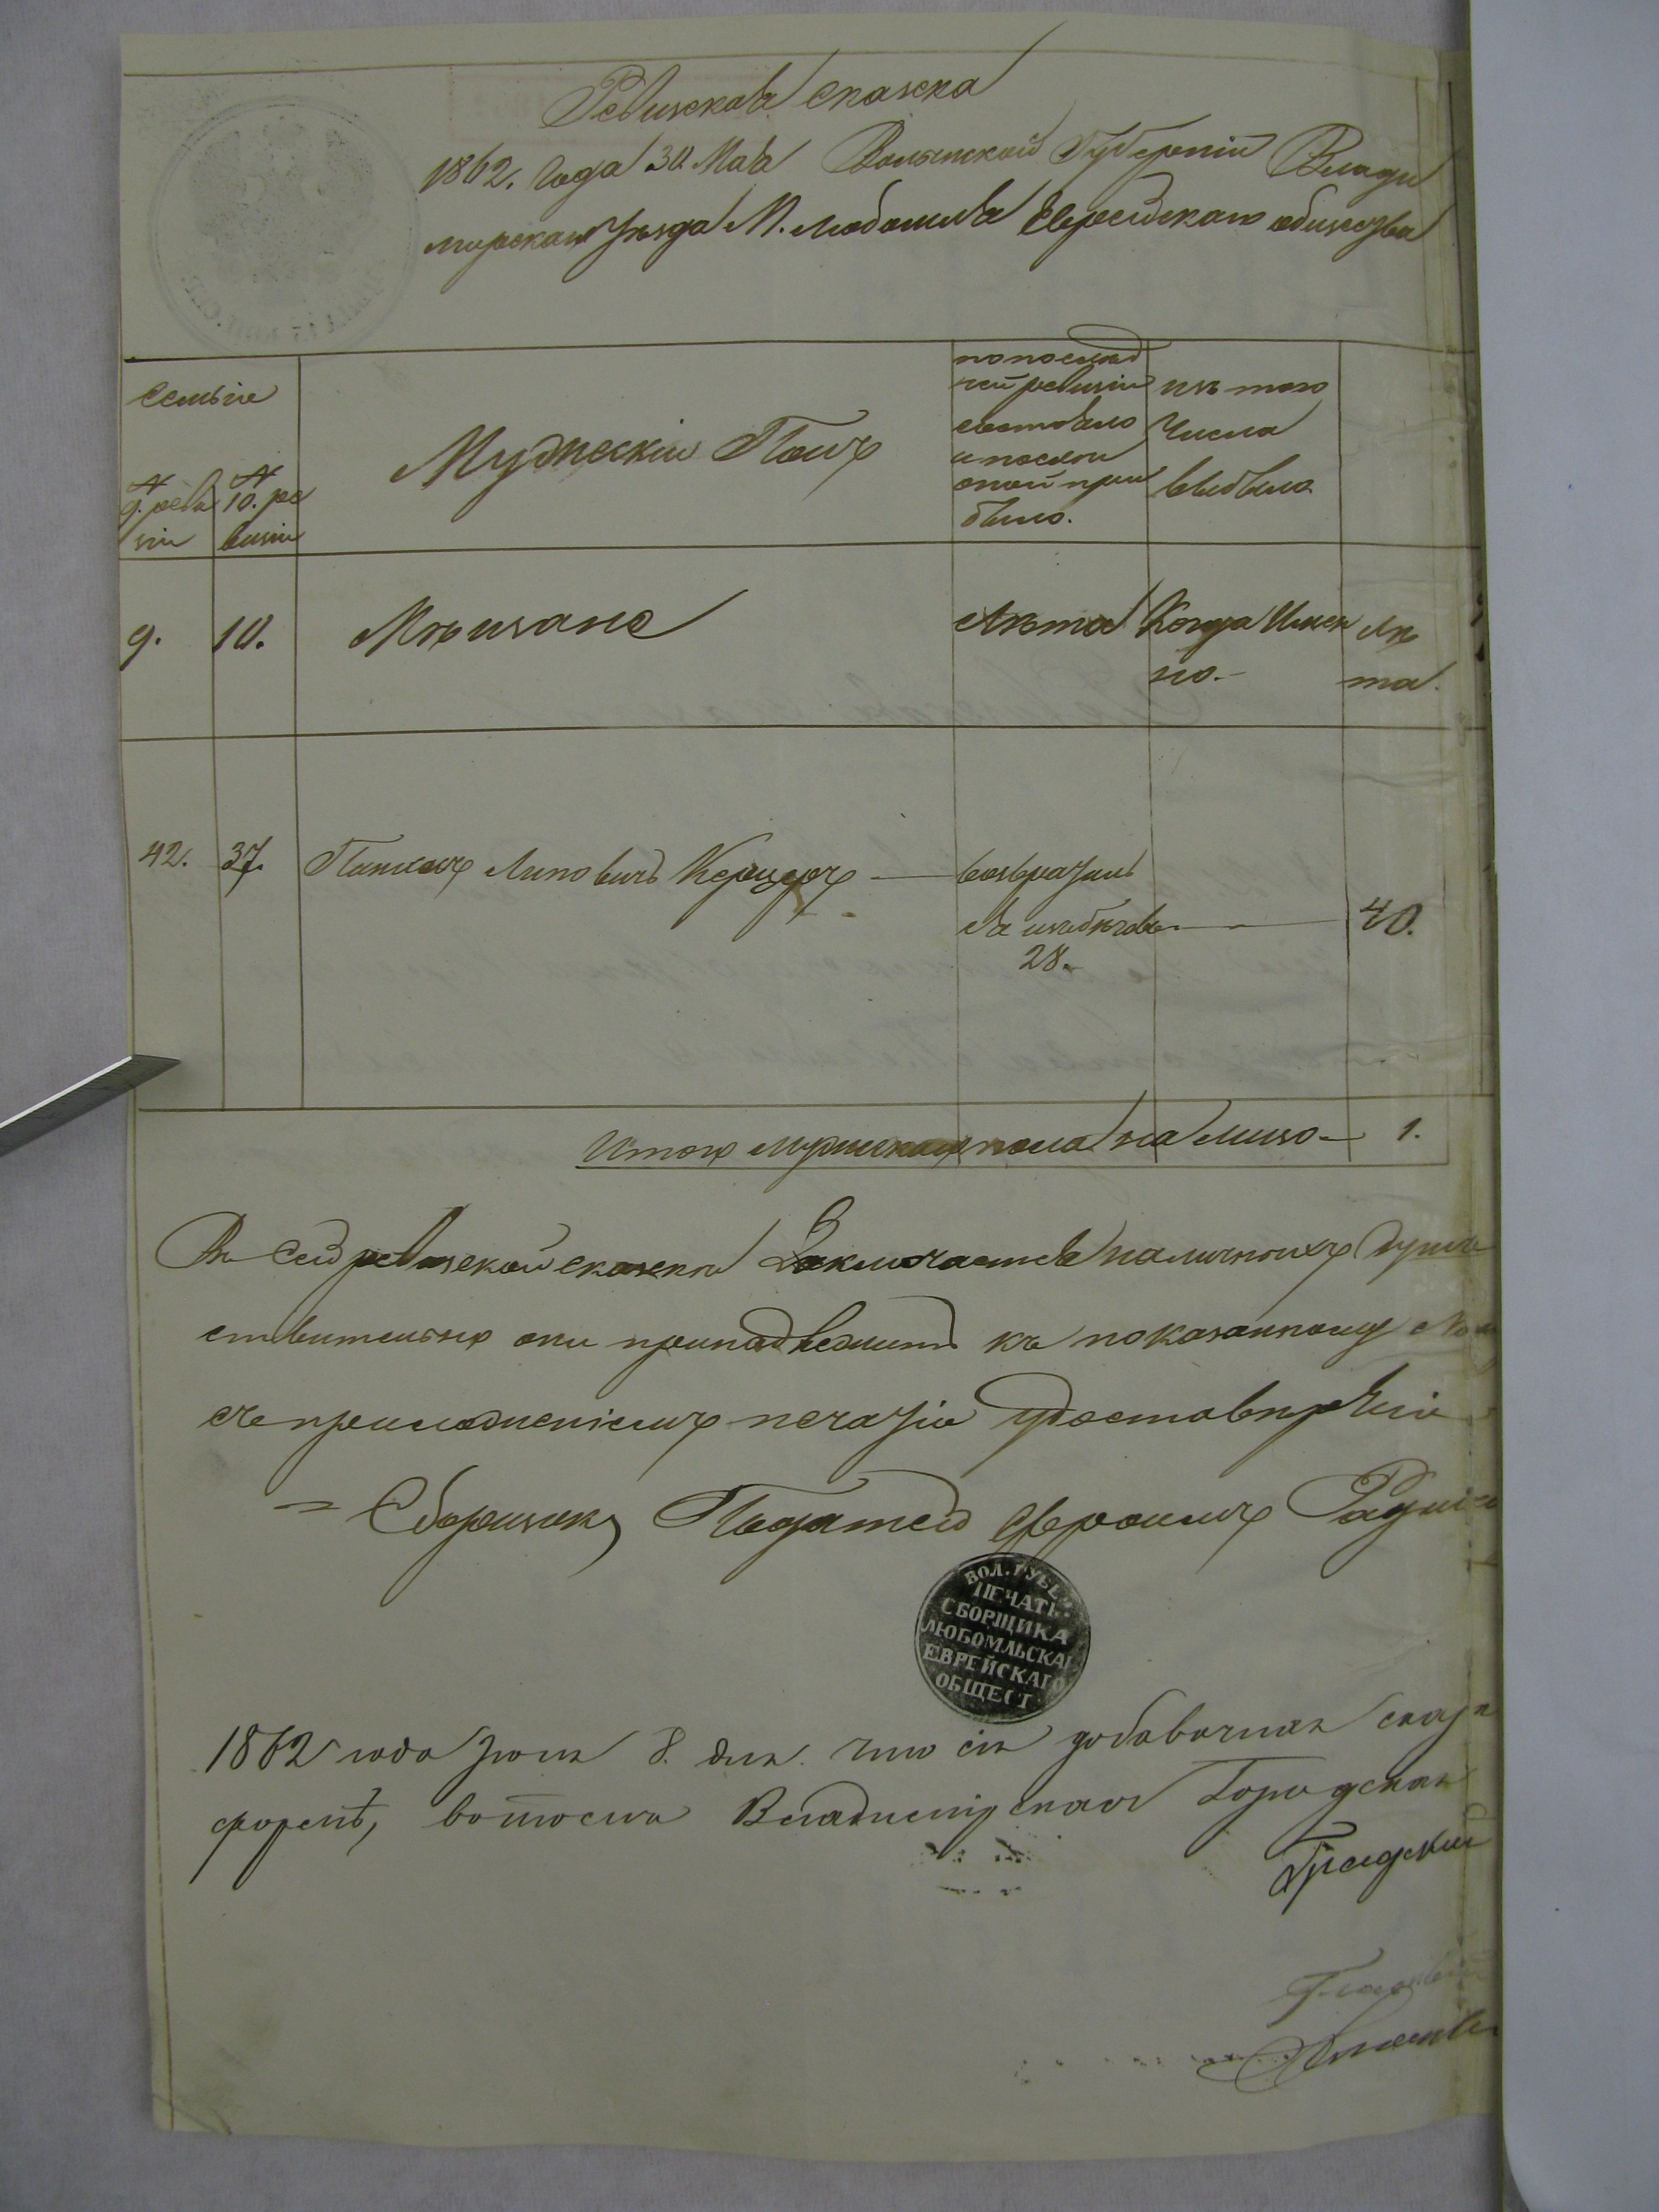 Ревизская сказка
1862. года 30 Мая Волынской Губерніи Влади
мирскаго уѣзда М. Любомля Еврейскаго общества
Семьи
№ 9. реви
зіи
№ 10. ре
визіи
Мужескій Полъ
по послѣд
ней ревизіи
состояло
и послѣ
оной при
было.
изъ того
Числа
выбыло
9. 10. Мѣщане Лѣта Когда Имен
но.- Лѣ
та.
42. 37. Липовичъ Керцеръ — возвратил
ся изъ бѣговъ — 40.
28.-
Итого мужескаго пола на лицо - 1.
Въ сей ревизской сказки Заключается наличныхъ душъ
ствительно они принадлежитъ къ показанному
съ приложеніемъ печати удостовѣряю
= Сборщикъ Податей
ВОЛ. ГУБЕР
ПЕЧАТЬ
СБОРЩИКА
ЛЮБОМЛЬСКА
ЕВРЕЙСКАГО
ОБЩЕСТ
1862 года Іюня 8. дня. что сія добавочная сказ
формѣ, въ томъ Владимірская Городская
Градскій